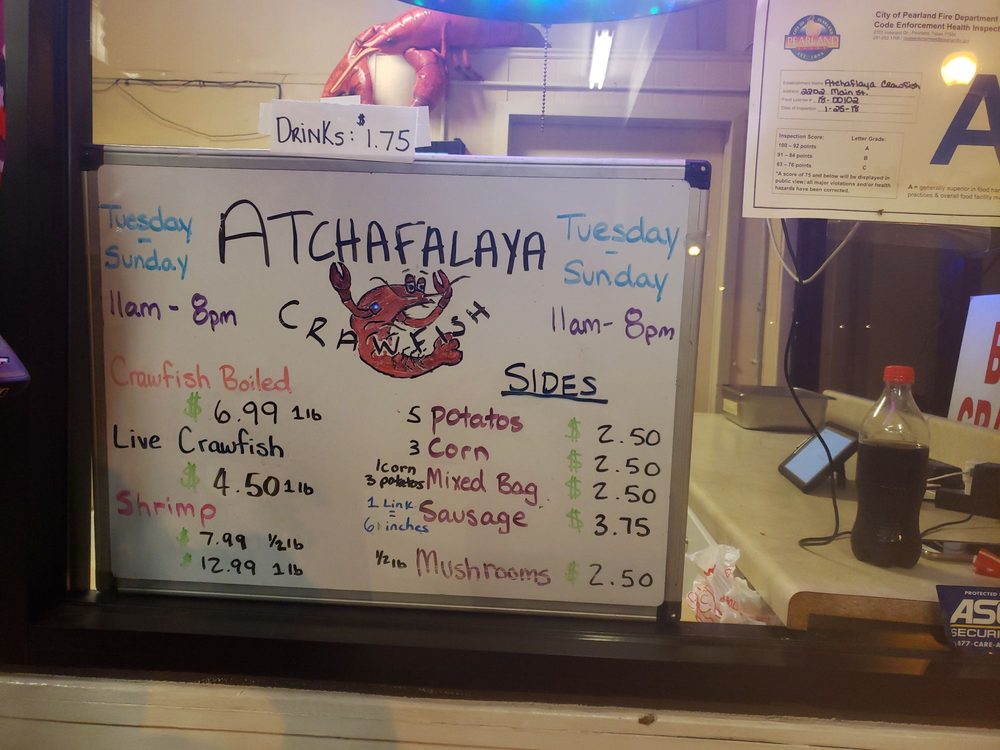 DRINKS: $1.75
Tuesday
-
Sunday
11am - 8pm
ATCHAFALAYA
CRAWFISH
Tuesday
-
Sunday
11am - 8pm
Crawfish Boiled
$ 6.99 1lb
Live Crawfish
$ 4.50 1lb
Shrimp
$ 7.99 1/2lb
$ 12.99 1lb
SIDES
5 Potatos $ 2.50
3 Corn $ 2.50
1corn
3 potatos Mixed Bag $ 2.50
1 Link
=
6 inches Sausage $ 3.75
1/2 lb Mushrooms $ 2.50
City of Pearland Fire Department
Code Enforcement Health Inspec
PEARLAND
Establishment Name Atchafalaya Crawfish
Address 2202 Main St.
Food License # 18-00102
Date of Inspection 1-25-18
Inspection Score: Letter Grade:
100 – 92 points A
91 – 84 points B
83 – 76 points C
*A score of 75 and below will be displayed in
public view; all major violations and/or health
hazards have been corrected.
A
A = generally superior in food
practices & overall food facility
B
CRA
PROTECTED
SECURI
877-CARE-A